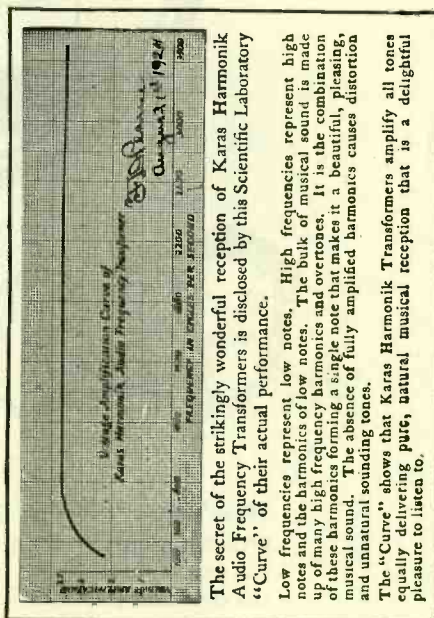 Voltage Amplification Curve of
Karas Harmonik Audio Frequency Transformer
August 1st 1924
VOLTAGE AMPLIFICATION
FREQUENCY IN CYCLES PER SECOND
The secret of the strikingly wonderful reception of Karas Harmonik
Audio Frequency Transformers is disclosed by this Scientific Laboratory
“Curve” of their actual performance.
Low frequencies represent low notes. High frequencies represent high
notes and the harmonics of low notes. The bulk of musical sound is made
up of many high frequency harmonics and overtones. It is the combination
of these harmonics forming a single note that makes it a beautiful, pleasing,
musical sound. The absence of fully amplified harmonics causes distortion
and unnatural sounding tones.
The “Curve” shows that Karas Harmonik Transformers amplify all tones
equally delivering pure, natural musical reception that is a delightful
pleasure to listen to.